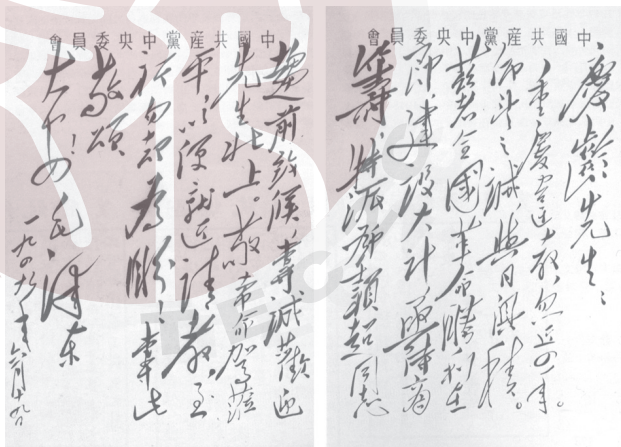 中國共産黨中央委員會
慶齡先生：
重慶違教，忽近四年。
仰望之誠與日俱積。
兹者全國革命勝利在
即，建設大計，亟待商
籌，特派鄧穎超同志
中國共産黨中央委員會
趨前致候，專誠歡迎
先生北上。敬希命駕蒞
平，以便就近請教，至
祈勿却為盼！專此
敬頌
大安！毛澤东
一九四九年六月十九日